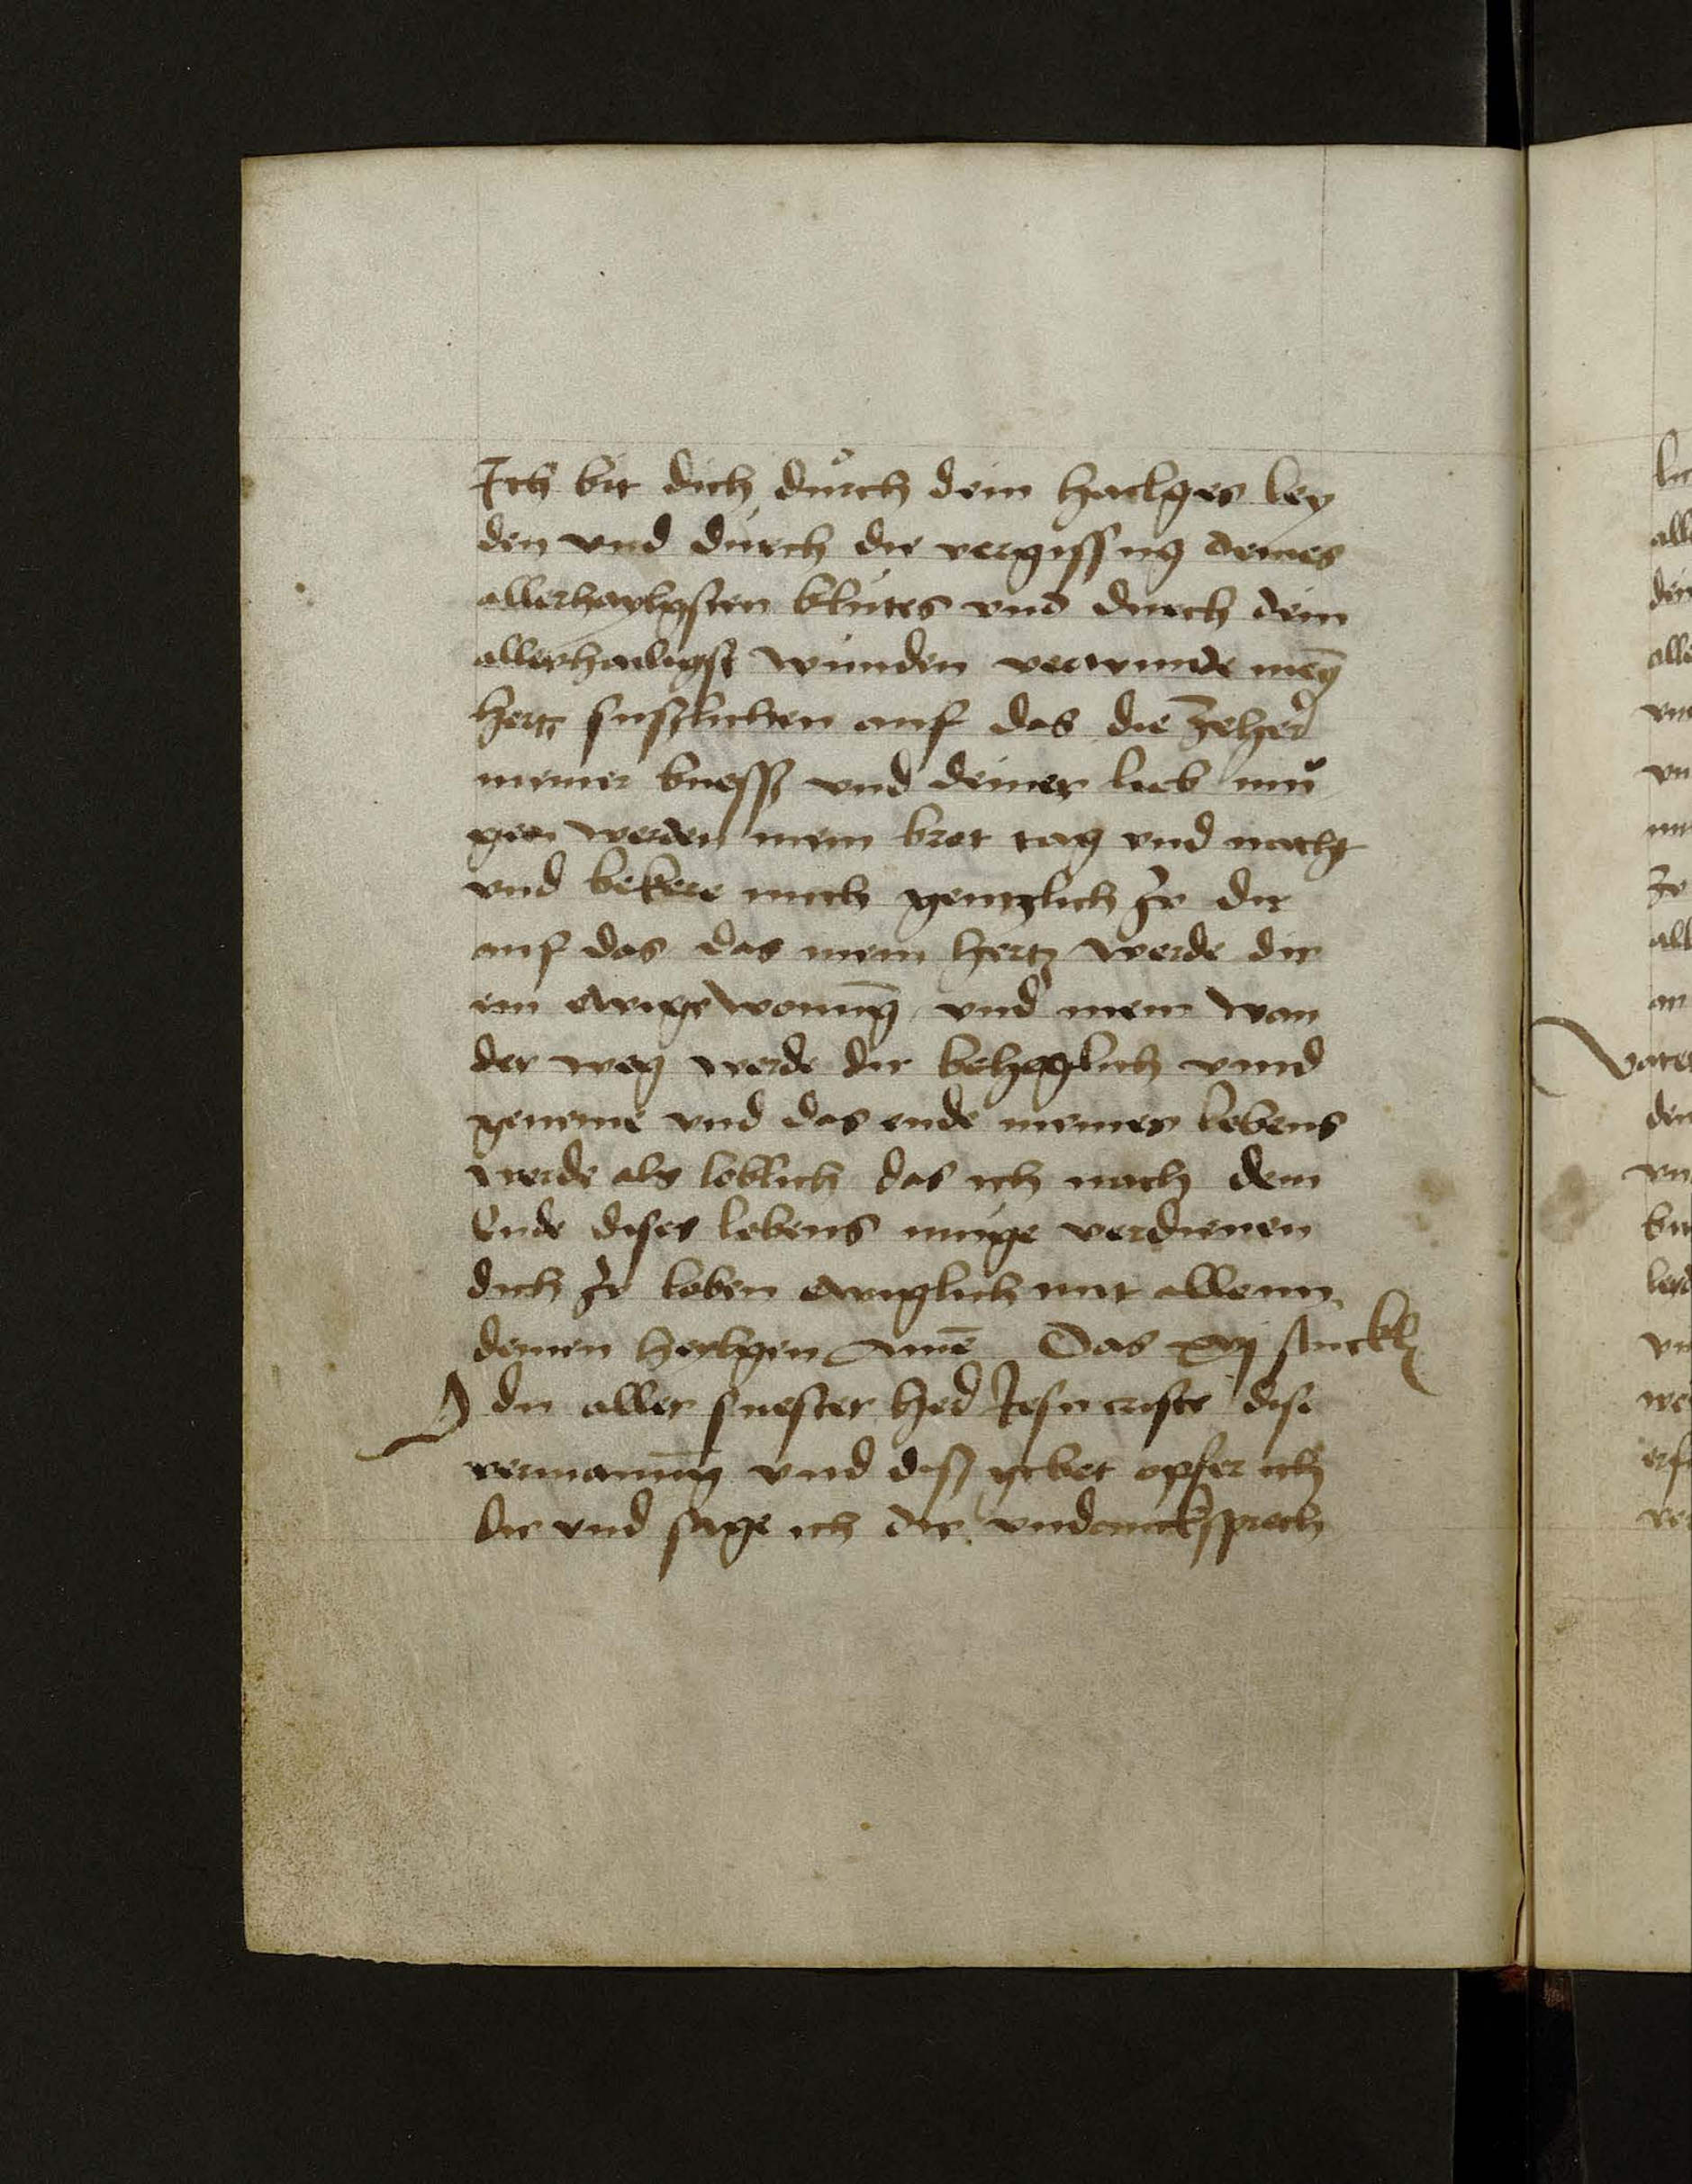 Ich bit dich důrch dein hailges ley
den vnd durch die vergissung deines
allerhaylgsten blutes vnd durch dein
allerhailigst wunden verwunde mey̅
hertz sussi̅lichen auf das die zeher
meiner buessz vnd deiner lieb mü
gen werden mein brot tag vnd nacht
vnd bekere mich gentzlich zw dir
auf das das mein hertz werde dir
ein ewige wonung vnd mein wan
der weg werde dir beheglich vnnd
geneme vnd das ende meines lebens
werde als loblich das ich nach dem
Ende dises lebens müge verdienen
dich zw loben ewiglich mit allenn
deinen heylgen Amē Das xvj stuckh
O du aller suester her Jesu criste dise
vermanūg vnd diss gebet opfer ich
dir vnd sage ich dir vndancksprech
vater